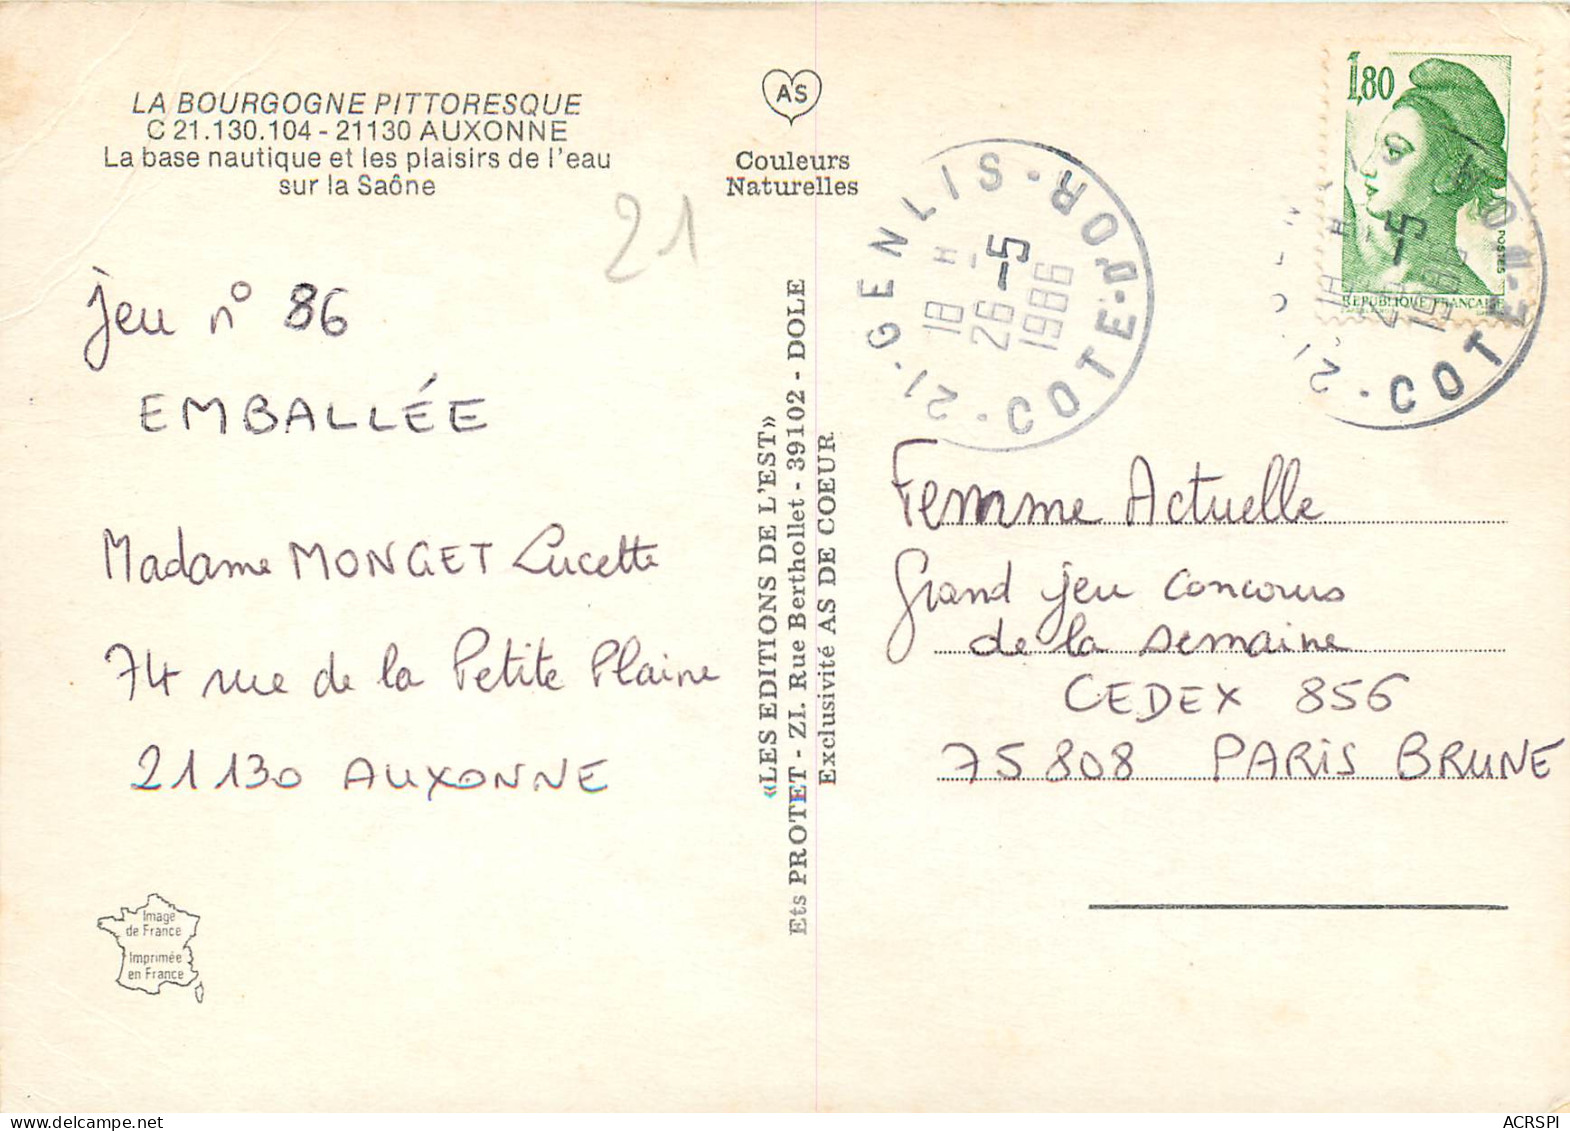 LA BOURGOGNE PITTORESQUE
C 21.130.104 - 21130 AUXONNE
La base nautique et les plaisirs de l'eau
sur la Saône
AS
Couleurs
Naturelles
21
Jeu n° 86
EMBALLÉE
Madame MONGET Lucette
74 rue de la Petite Plaine
21130 AUXONNE
Image
de France
Imprimée
en France
«LES EDITIONS DE L'EST»
Ets PROTET - ZI. Rue Berthollet - 39102 - DOLE
Exclusivité AS DE COEUR
21-GENLIS·COTE-D'OR
18 H
26-5
1986
1,80
POSTES
REPUBLIQUE FRANCAISE
18 H
26-5
1986
21· COTE-D'OR
Femme Actuelle
Grand jeu concours
de la semaine
CEDEX 856
75808 PARIS BRUNE
ACRSPI